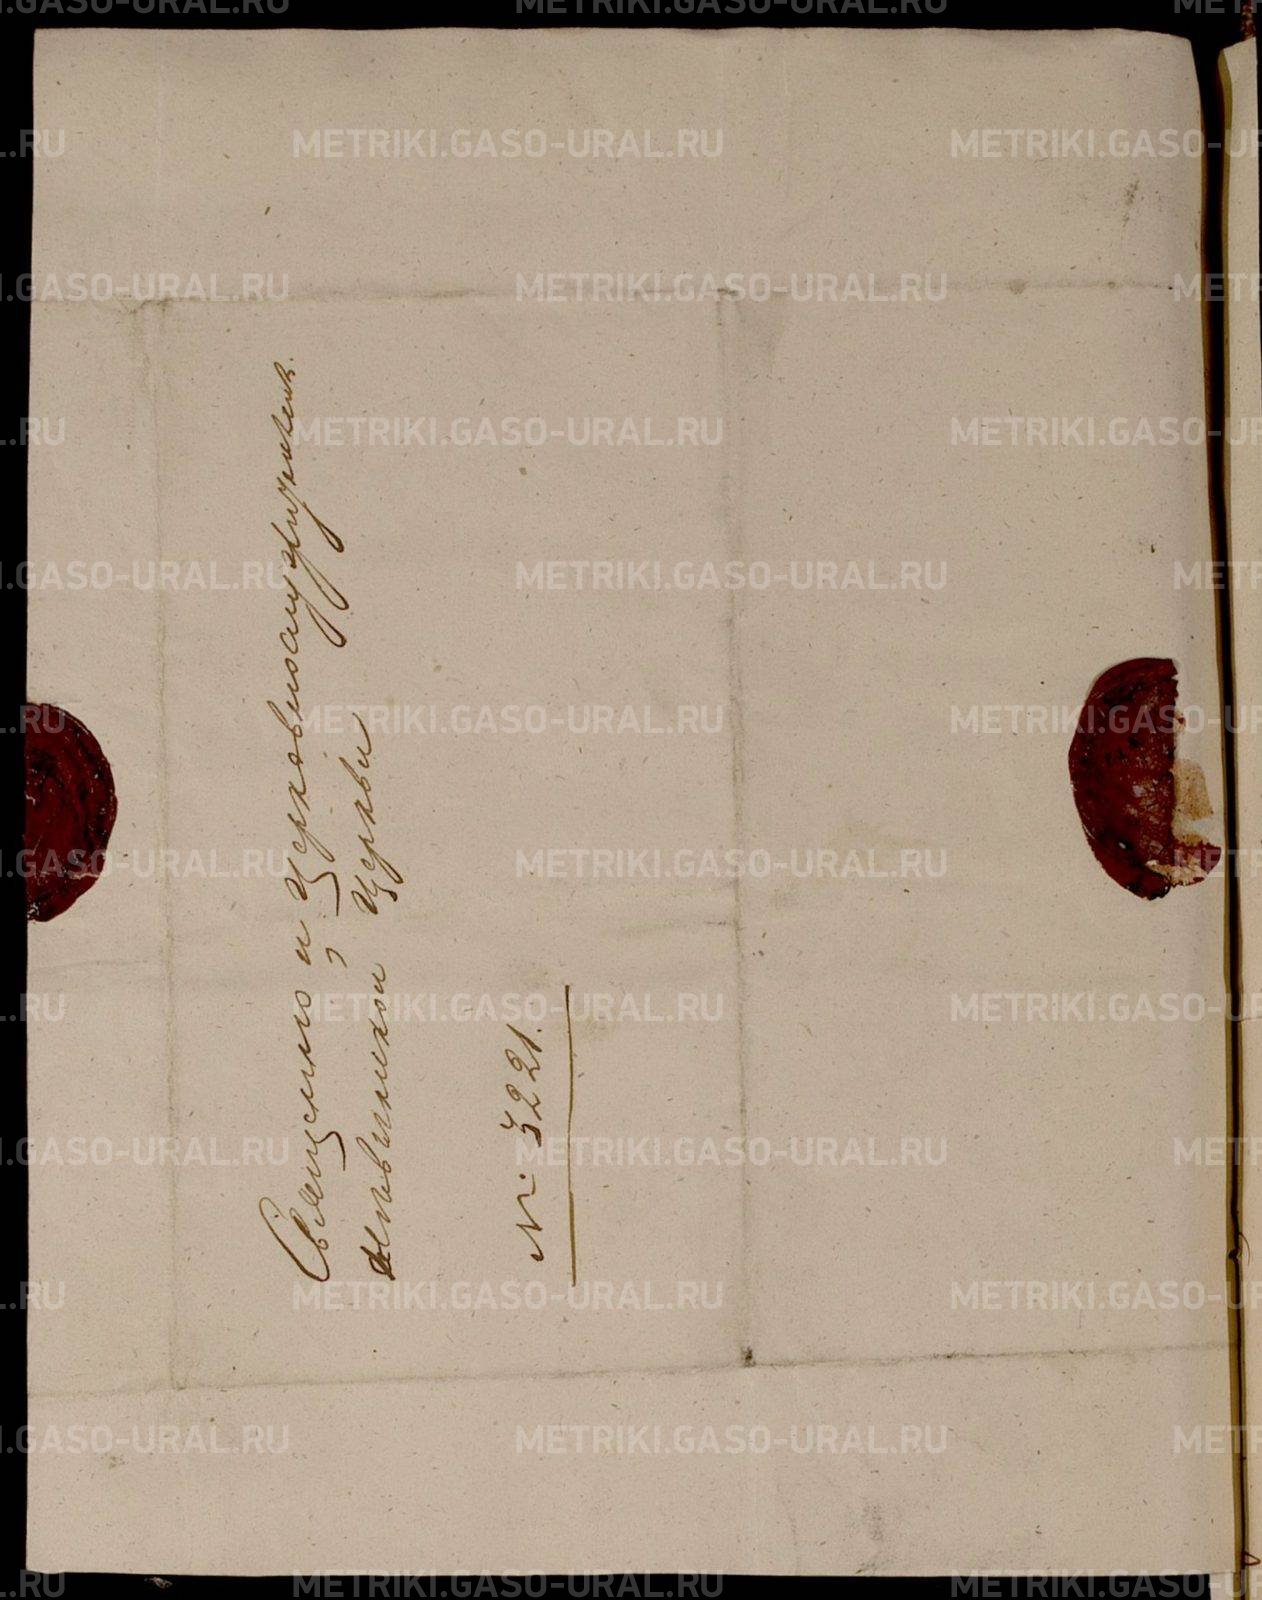 Священно и церковнослужителямъ
церкви
№ 3221.
METRIKI.GASO-URAL.RU